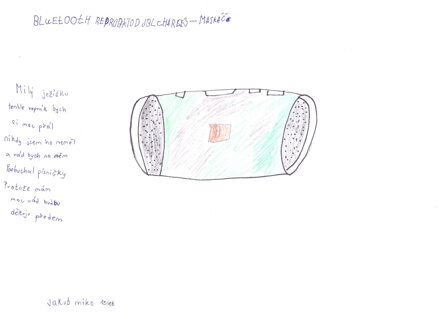 BLUETOOTH REPRODUKTOR JBL CHARGE5 - MASKÁČ
Milý ježíšku
tenhle reprák bych
si moc přál
nikdy jsem ho neměl
a rád bych na něm
Poslouchal písničky
Protože mám
moc rád hudbu
děkuju předem
Jakub